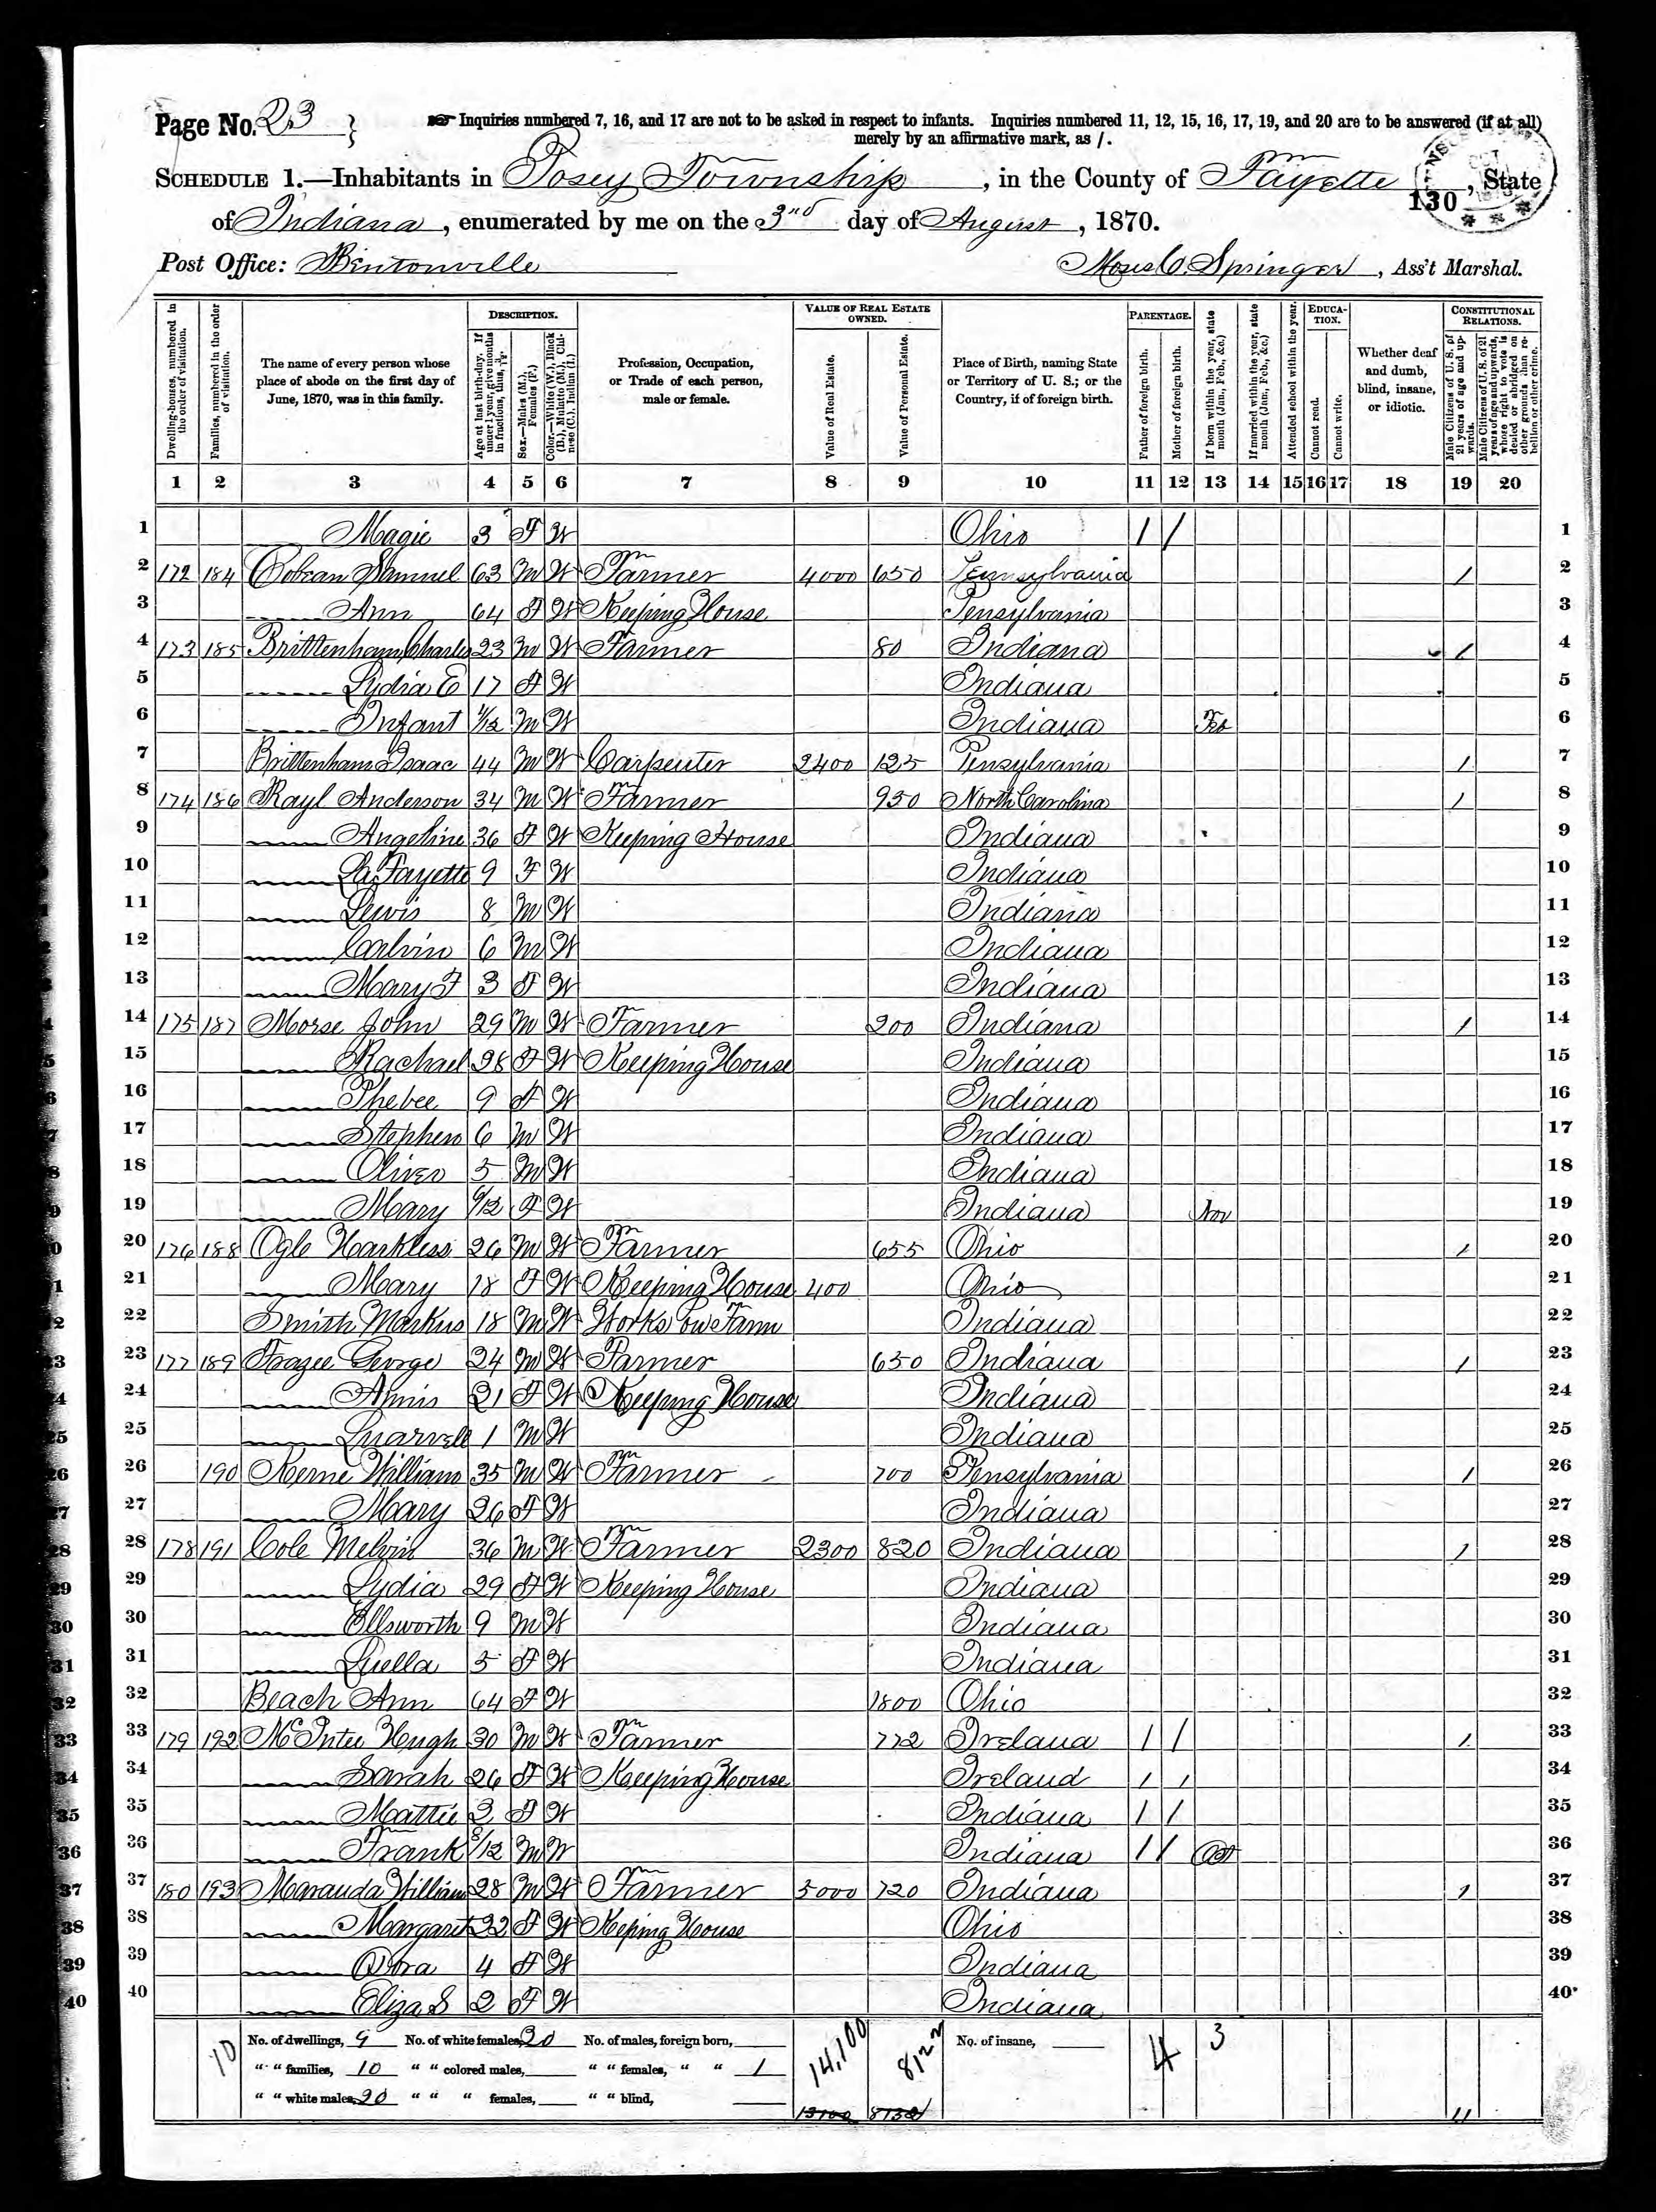 Page No. 23 }
☞ Inquiries numbered 7, 16, and 17 are not to be asked in respect to infants. Inquiries numbered 11, 12, 15, 16, 17, 19, and 20 are to be answered (if at all)
merely by an affirmative mark, as /.
SCHEDULE 1.—Inhabitants in Posey Township, in the County of Fayette, State
130
of Indiana, enumerated by me on the 3rd day of August, 1870.
Post Office: Bentonville Moses C. Springer, Ass't Marshal.
Dwelling-houses, numbered in the order of visitation.
Families, numbered in the order of visitation.
The name of every person whose place of abode on the first day of June, 1870, was in this family.
DESCRIPTION.
Age at last birth-day. If under 1 year, give months in fractions, thus, 3/12.
Sex.—Males (M.), Females (F.)
Color.—White (W.), Black (B.), Mulatto (M.), Chinese (C.), Indian (I.)
Profession, Occupation, or Trade of each person, male or female.
VALUE OF REAL ESTATE OWNED.
Value of Real Estate.
Value of Personal Estate.
Place of Birth, naming State or Territory of U. S.; or the Country, if of foreign birth.
PARENTAGE.
Father of foreign birth.
Mother of foreign birth.
If born within the year, state month (Jan., Feb., &c.)
If married within the year, state month (Jan., Feb., &c.)
Attended school within the year.
EDUCATION.
Cannot read.
Cannot write.
Whether deaf and dumb, blind, insane, or idiotic.
CONSTITUTIONAL RELATIONS.
Male Citizens of U. S. of 21 years of age and upwards.
Male Citizens of U. S. of 21 years of age and upwards, whose right to vote is denied or abridged on other grounds than rebellion or other crime.
1 2 3 4 5 6 7 8 9 10 11 12 13 14 15 16 17 18 19 20
1 Magie 3 F W Ohio / / 1
2 172 184 Samuel 63 M W Farmer 4000 650 Pennsylvania / 2
3 Ann 64 F W Keeping House Pensylvania 3
4 173 185 Brittenham Charles 23 M W Farmer 80 Indiana / 4
5 Lydia E 17 F W Indiana 5
6 Infant M W Indiana Feb 6
7 Brittenham Isaac 44 M W Carpenter 2400 125 Pensylvania / 7
8 174 186 Rayl Anderson 34 M W Farmer 950 North Carolina / 8
9 Angeline 36 F W Keeping House Indiana 9
10 La Fayette 9 F W Indiana 10
11 Lewis 8 M W Indiana 11
12 Calvin 6 M W Indiana 12
13 Mary F 3 F W Indiana 13
14 175 187 Morse John 29 M W Farmer 200 Indiana / 14
15 Rachael 28 F W Keeping House Indiana 15
16 Phebee 9 F W Indiana 16
17 Stephen 6 M W Indiana 17
18 Oliver 5 M W Indiana 18
19 Mary 6/12 F W Indiana Nov 19
20 176 188 Ogle Harkless 26 M W Farmer 655 Ohio / 20
21 Mary 18 F W Keeping House 400 Ohio 21
22 Smith Markus 18 M W Works on Farm Indiana 22
23 177 189 Frazee George 24 M W Farmer 650 Indiana / 23
24 21 F W Keeping House Indiana 24
25 1 M W Indiana 25
26 190 Kerne William 35 M W Farmer 700 Pensylvania / 26
27 Mary 26 F W Indiana 27
28 178 191 Cole Melvin 36 M W Farmer 2300 820 Indiana / 28
29 Lydia 29 F W Keeping House Indiana 29
30 Ellsworth 9 M W Indiana 30
31 Luella 5 F W Indiana 31
32 Beach Ann 64 F W 1800 Ohio 32
33 179 192 McIntee Hugh 30 M W Farmer 772 Ireland / / / 33
34 Sarah 26 F W Keeping House Ireland / / 34
35 Mattie 3 F W Indiana / / 35
36 Frank 8/12 M W Indiana / / Oct 36
37 180 193 Maranda William 28 M W Farmer 5000 720 Indiana / 37
38 Margaret 22 F W Keeping House Ohio 38
39 4 F W Indiana 39
40 Eliza S 2 F W Indiana 40
10 No. of dwellings, 9 No. of white females, 20 No. of males, foreign born, 14,100 8122 No. of insane, 4 3
" " families, 10 " " colored males, " " females, " " 1
" " white males, 20 " " " females, " " blind, 13100 8132 11